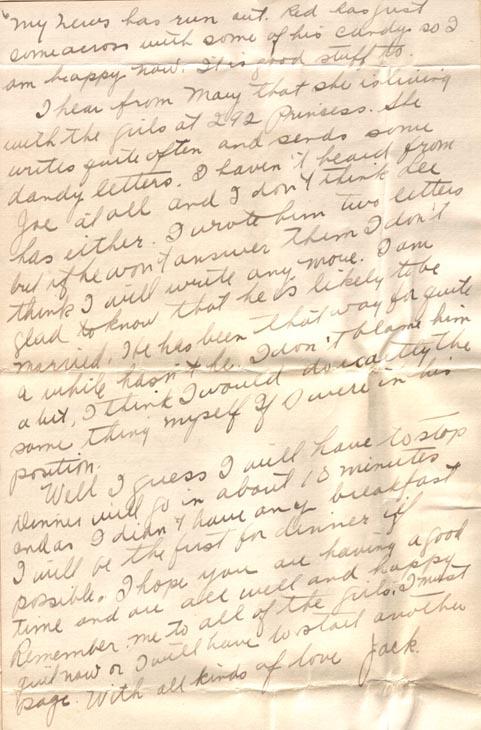 "My news has run out. Red has just
come across with some of his candy so I
am happy now. It is good stuff to.
I hear from Mary that she is living
with the girls at 292 Princess. She
writes quite often and sends some
dandy letters. I haven't heard from
Joe at all and I don't think Lee
has either. I wrote him two letters
but if he won't answer them I don't
think I will write any more. I am
glad to know that he is likely to be
married. He has been that way for quite
a while hasn't he. I don't blame him
a bit, I think I would do exactly the
same thing myself if I were in his
position.
Well I guess I will have to stop
dinner will go in about 15 minutes
and as I didn't have any breakfast
I will be the first for dinner if
possible. I hope you are having a good
time and are all well and happy
Remember me to all of the girls. I must
quit now or I will have to start another
page. With all kinds of love Jack.